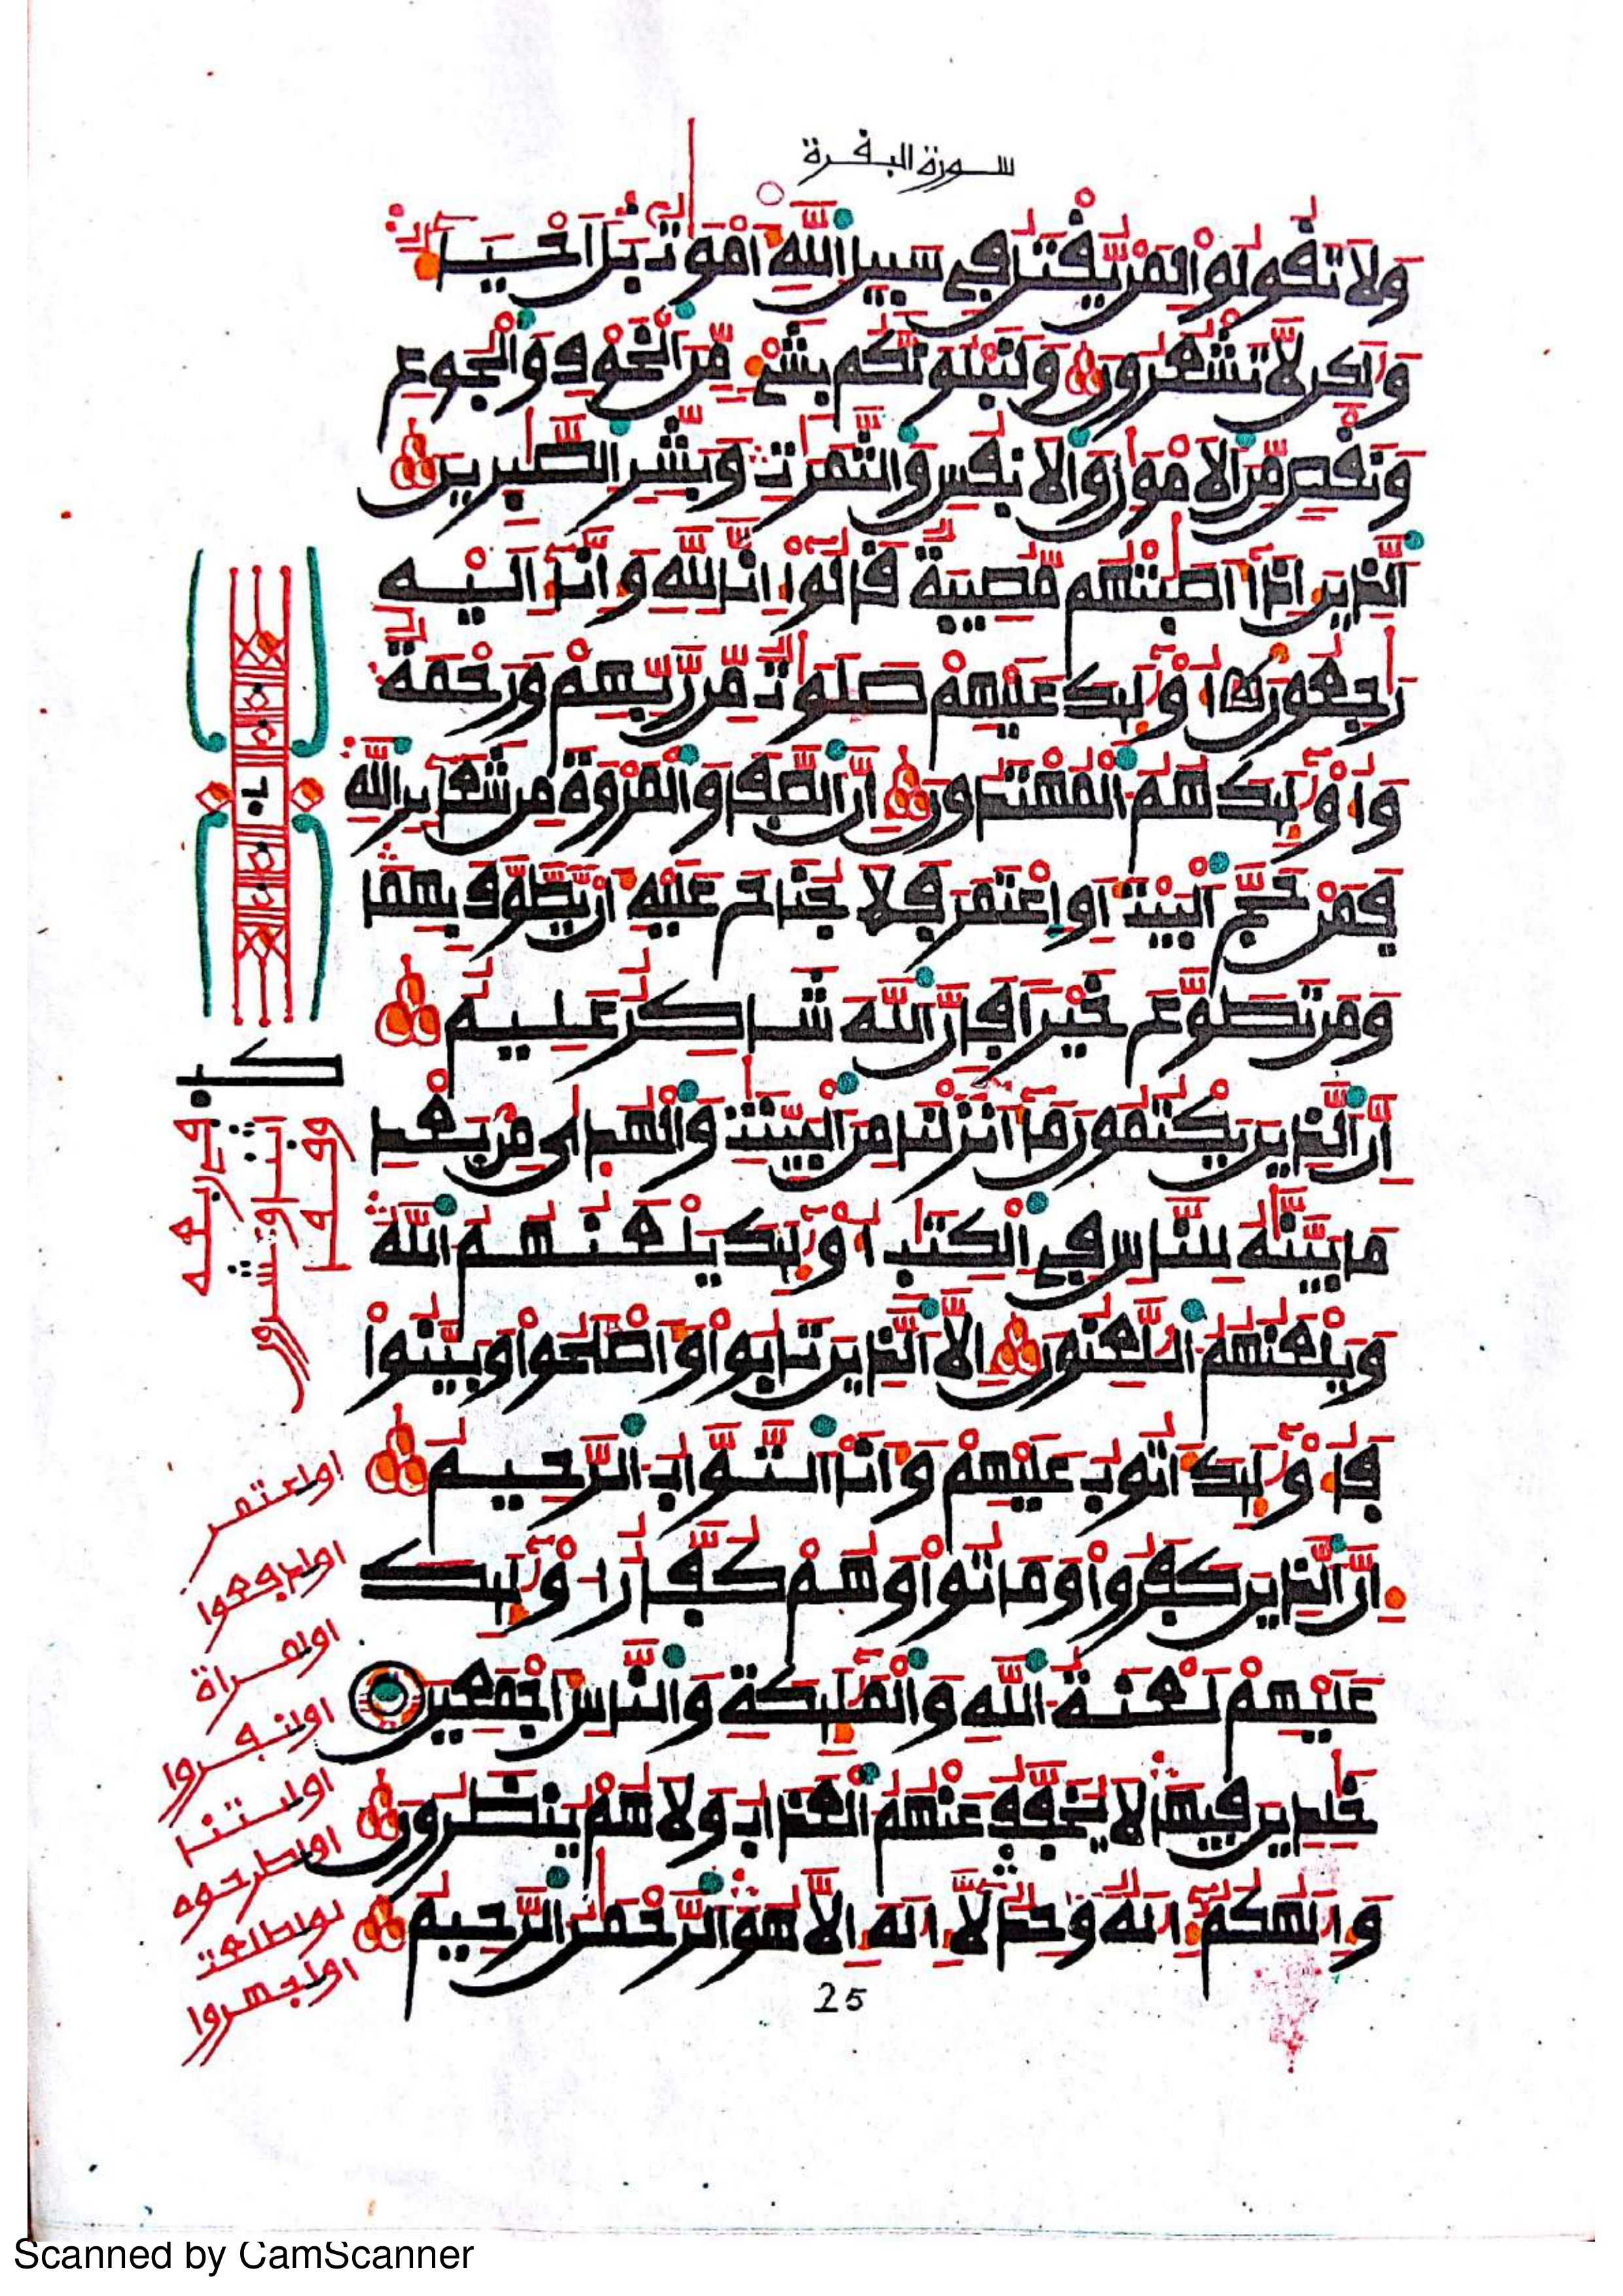 سورة البفرة
وَلَا تَفُولُوا لِمَنْ يُّفْتَلُ فِي سَبِيلِ اِللَّهِ أَمْوَٰتٌ بَلَ اَحْيَآءٌ
وَلَٰكِن لَّا تَشْعُرُونَ وَلَنَبْلُوَنَّكُم بِشَيْءٍ مِّنَ اَلْخَوْفِ وَالْجُوعِ
وَنَفْصٍ مِّنَ اَلَامْوَٰلِ وَالَانفُسِ وَالثَّمَرَٰتِ وَبَشِّرِ اِلصَّٰبِرِينَ
اَلذِينَ إِذَآ أَصَٰبَتْهُم مُّصِيبَةٌ فَالُوٓا إِنَّا لِلهِ وَإِنَّآ إِلَيْهِ
رَٰجِعُونَ أُوْلَٰٓئِكَ عَلَيْهِمْ صَلَوَٰتٌ مِّن رَّبِّهِمْ وَرَحْمَةٌ
وَأُوْلَٰٓئِكَ هُمُ اُلْمُهْتَدُونَ إِنَّ اَلصَّفَا وَالْمَرْوَةَ مِن شَعَآئِرِ اِللَّهِ
فَمَنْ حَجَّ اَلْبَيْتَ أَوِ اِعْتَمَرَ فَلَا جُنَاحَ عَلَيْهِ أَنْ يَّطَّوَّفَ بِهِمَا
وَمَن تَطَوَّعَ خَيْرًا فَإِنَّ اَللَّهَ شَاكِرٌ عَلِيمٌ
إِنَّ اَلذِينَ يَكْتُمُونَ مَآ أَنزَلْنَا مِنَ اَلْبَيِّنَٰتِ وَالْهُدَىٰ مِن بَعْدِ
مَا بَيَّنَّٰهُ لِلنَّاسِ فِي اِلْكِتَٰبِ أُوْلَٰٓئِكَ يَلْعَنُهُمُ اُللَّهُ
وَيَلْعَنُهُمُ اُللَّٰعِنُونَ إِلَّا اَلذِينَ تَابُوا وَأَصْلَحُوا وَبَيَّنُوا
فَأُوْلَٰٓئِكَ أَتُوبُ عَلَيْهِمْ وَأَنَا اَلتَّوَّابُ اُلرَّحِيمُ
إِنَّ اَلذِينَ كَفَرُوا وَمَاتُوا وَهُمْ كُفَّارٌ اُوْلَٰٓئِكَ
عَلَيْهِمْ لَعْنَةُ اُللَّهِ وَالْمَلَٰٓئِكَةِ وَالنَّاسِ أَجْمَعِينَ
خَٰلِدِينَ فِيهَا لَا يُخَفَّفُ عَنْهُمُ اُلْعَذَابُ وَلَا هُمْ يُنظَرُونَ
وَإِلَٰهُكُمُۥٓ إِلَٰهٌ وَٰحِدٌ لَّآ إِلَٰهَ إِلَّا هُوَ اَلرَّحْمَٰنُ اُلرَّحِيمُ
25
اواعتمر
Scanned by CamScanner